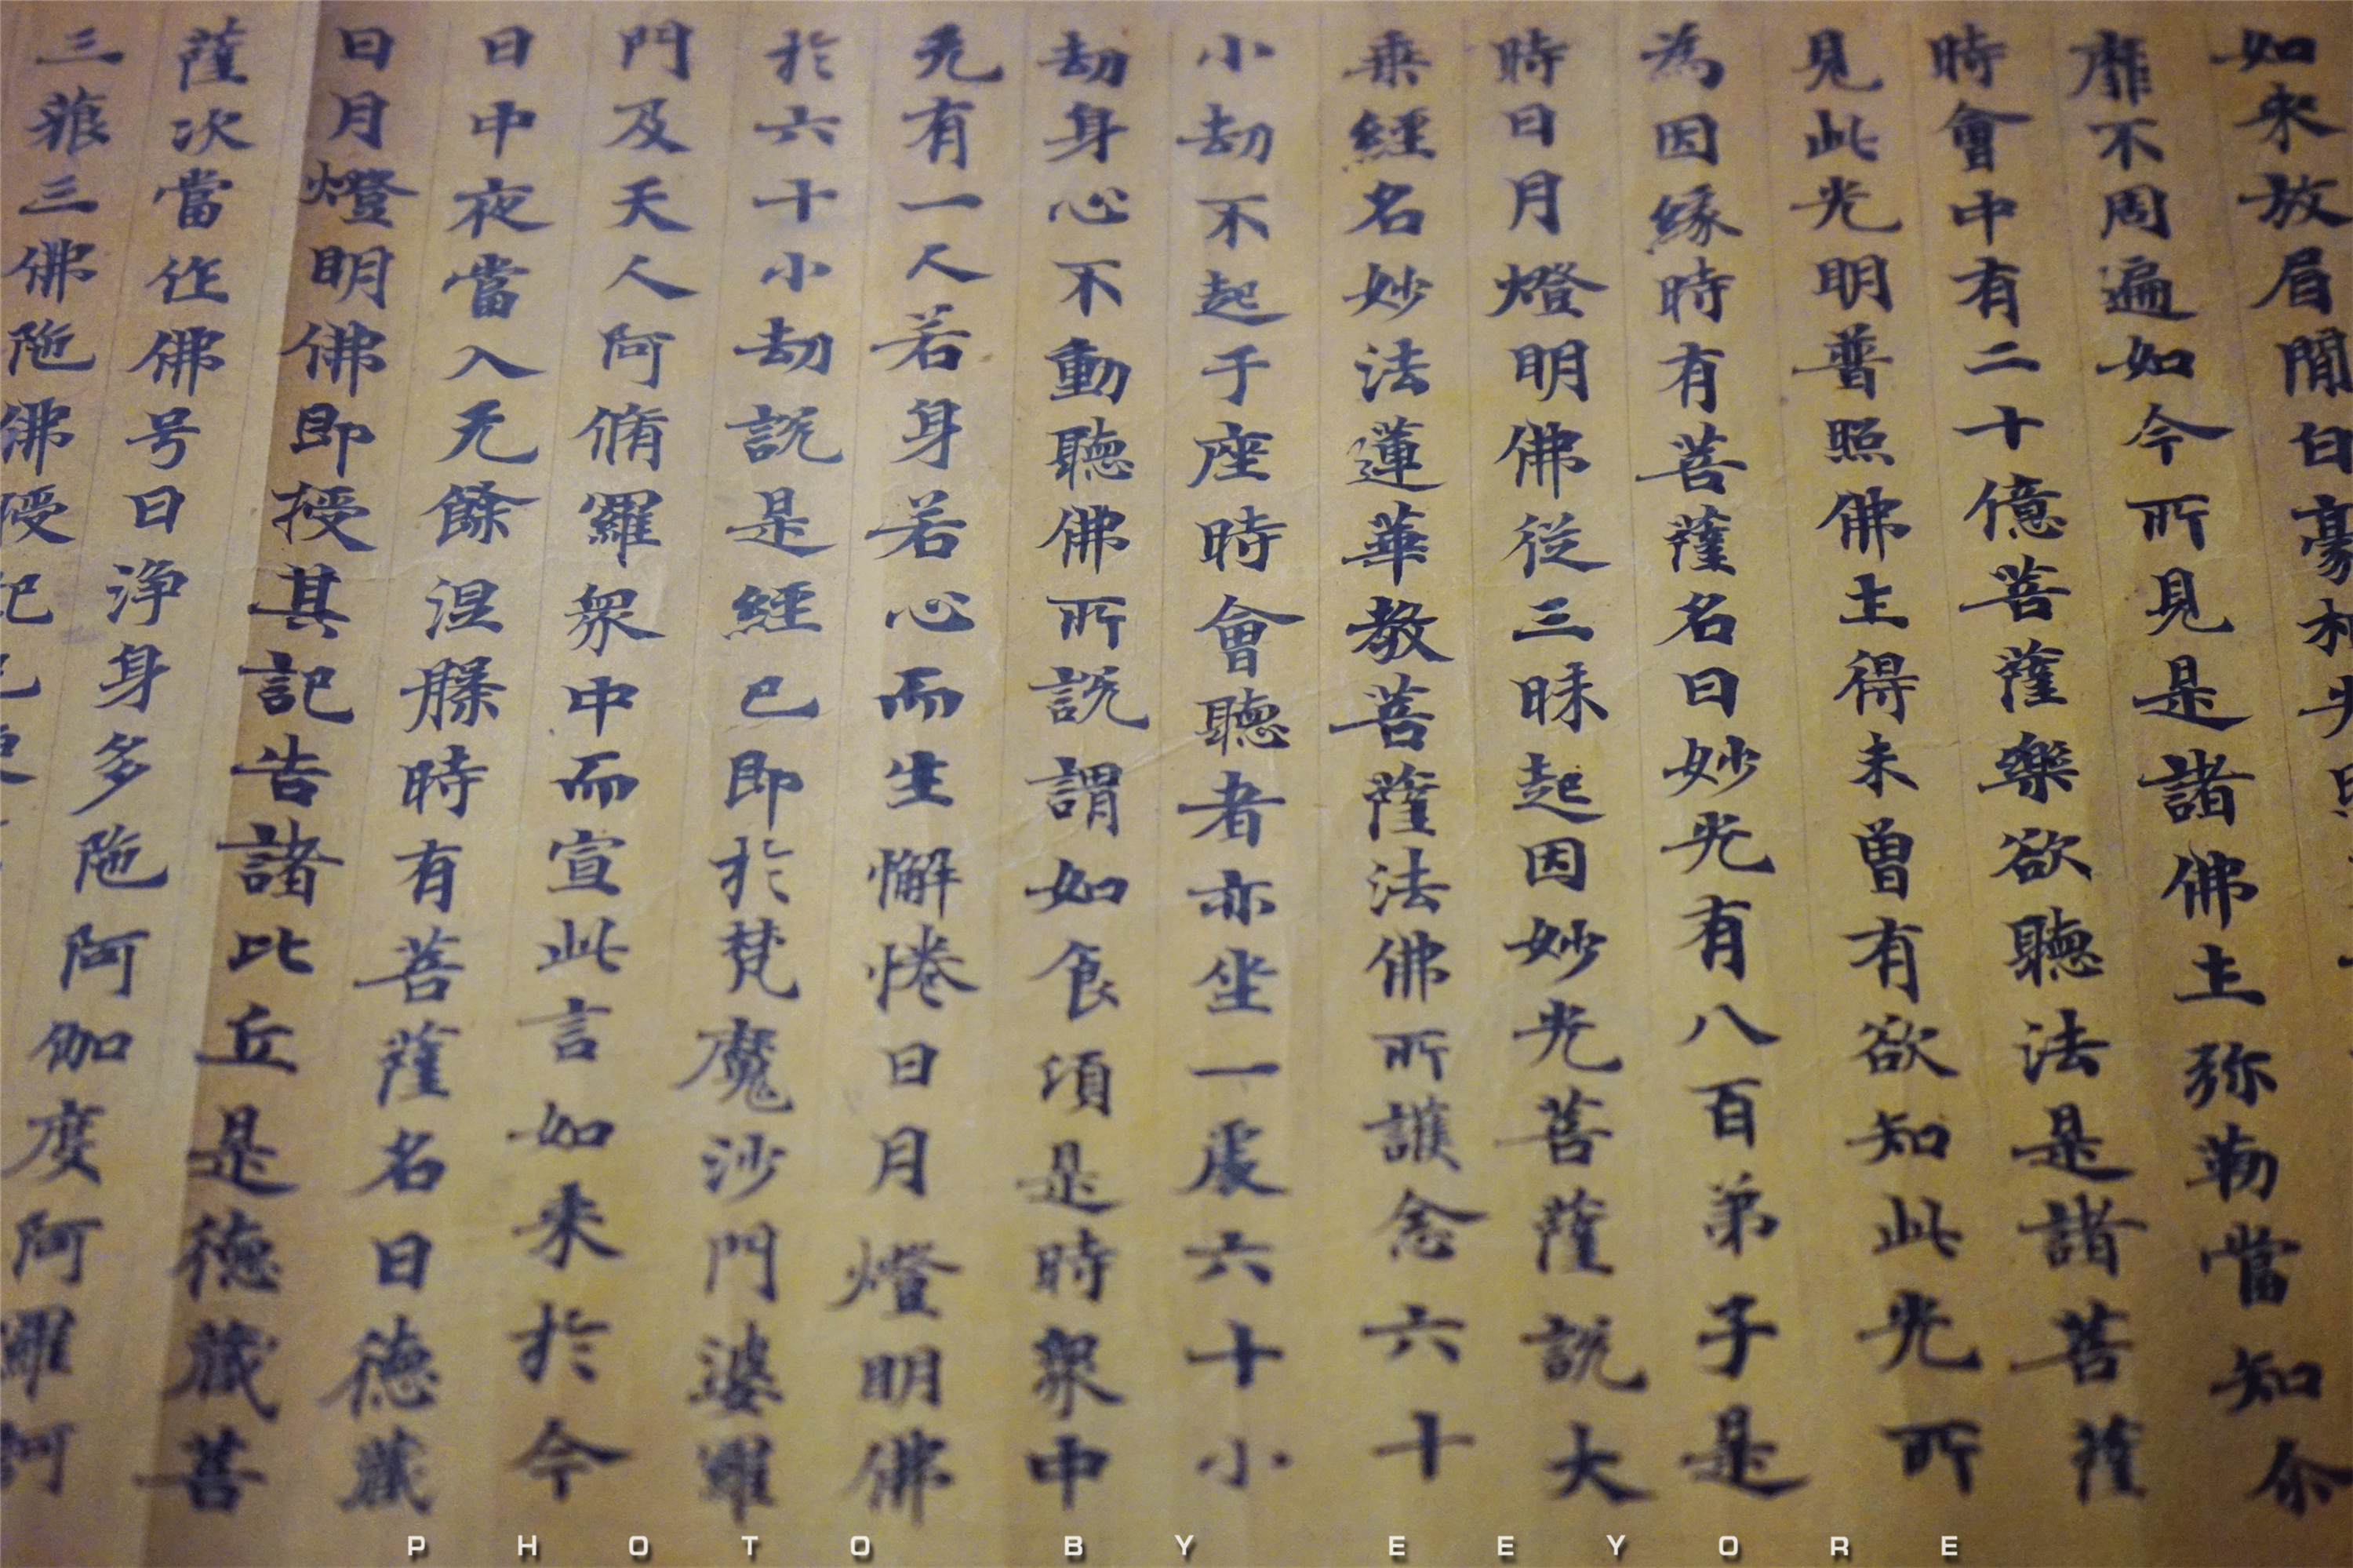 如来放眉間白豪相光
靡不周遍如今所見是諸佛土弥勒當知尒
時會中有二十億菩薩樂欲聽法是諸菩薩
見此光明普照佛土得未曽有欲知此光所
為因緣時有菩薩名曰妙光有八百弟子是
時日月燈明佛從三昧起因妙光菩薩說大
乗經名妙法蓮華教菩薩法佛所護念六十
小劫不起于座時會聽者亦坐一處六十小
劫身心不動聽佛所說謂如食須是時衆中
无有一人若身若心而生懈惓日月燈明佛
於六十小劫說是經已即於梵魔沙門婆羅
門及天人阿脩羅衆中而宣此言如来於今
日中夜當入无餘涅縣時有菩薩名曰德藏
日月燈明佛即授其記告諸比丘是德藏菩
薩次當作佛号曰淨身多陁阿伽度阿羅訶
三藐三佛陁佛授記
PHOTO BY EEYORE